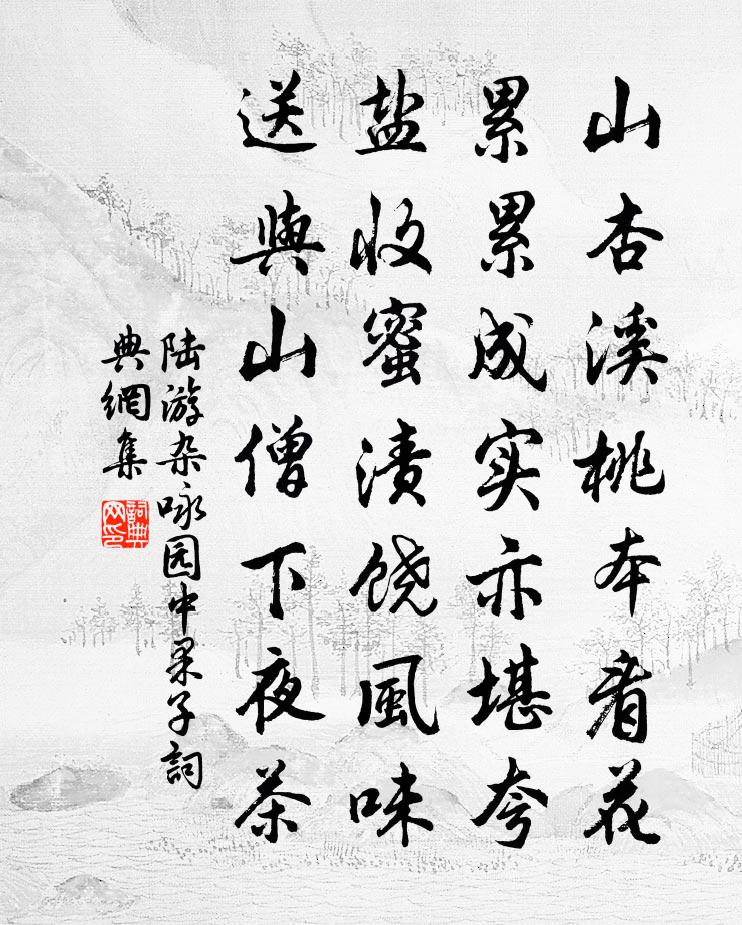 山杏溪桃本看花
累累成实亦堪夸
盐收蜜渍饶風味
送與山僧下夜茶
陆游杂咏园中果子詞
典網集
詞典
网印